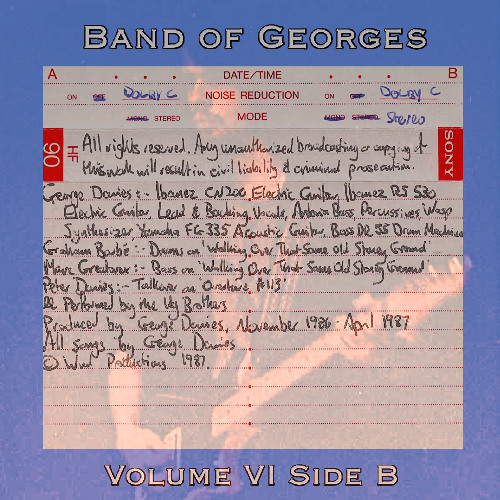 BAND OF GEORGES
A DATE/TIME B
ON OFF DOLBY C NOISE REDUCTION ON OFF DOLBY C
MONO STEREO MODE MONO STEREO Stereo
90 HF SONY
All rights reserved. Any unauthorized broadcasting or copying of
this work will result in civil liability & criminal prosecution.
George Davies :- Ibanez Electric Guitar, Ibanez RS 530
Electric Guitar, Lead & Backing Vocals, Percussives, Wasp
Synthesizer Yamaha FG 335 Acoustic Guitar, Boss DR 55 Drum Machine
Graham :- Drums on 'Walking Over That Same Old Stoney Ground'
Marc :- Bass on 'Walking Over That Same Old Stoney Ground'
Peter Davies :- Talkover on
Performed by the Brothers
Produced by George Davies, November 1986 - April 1987
All Songs by George Davies
© Productions 1987.
VOLUME VI SIDE B